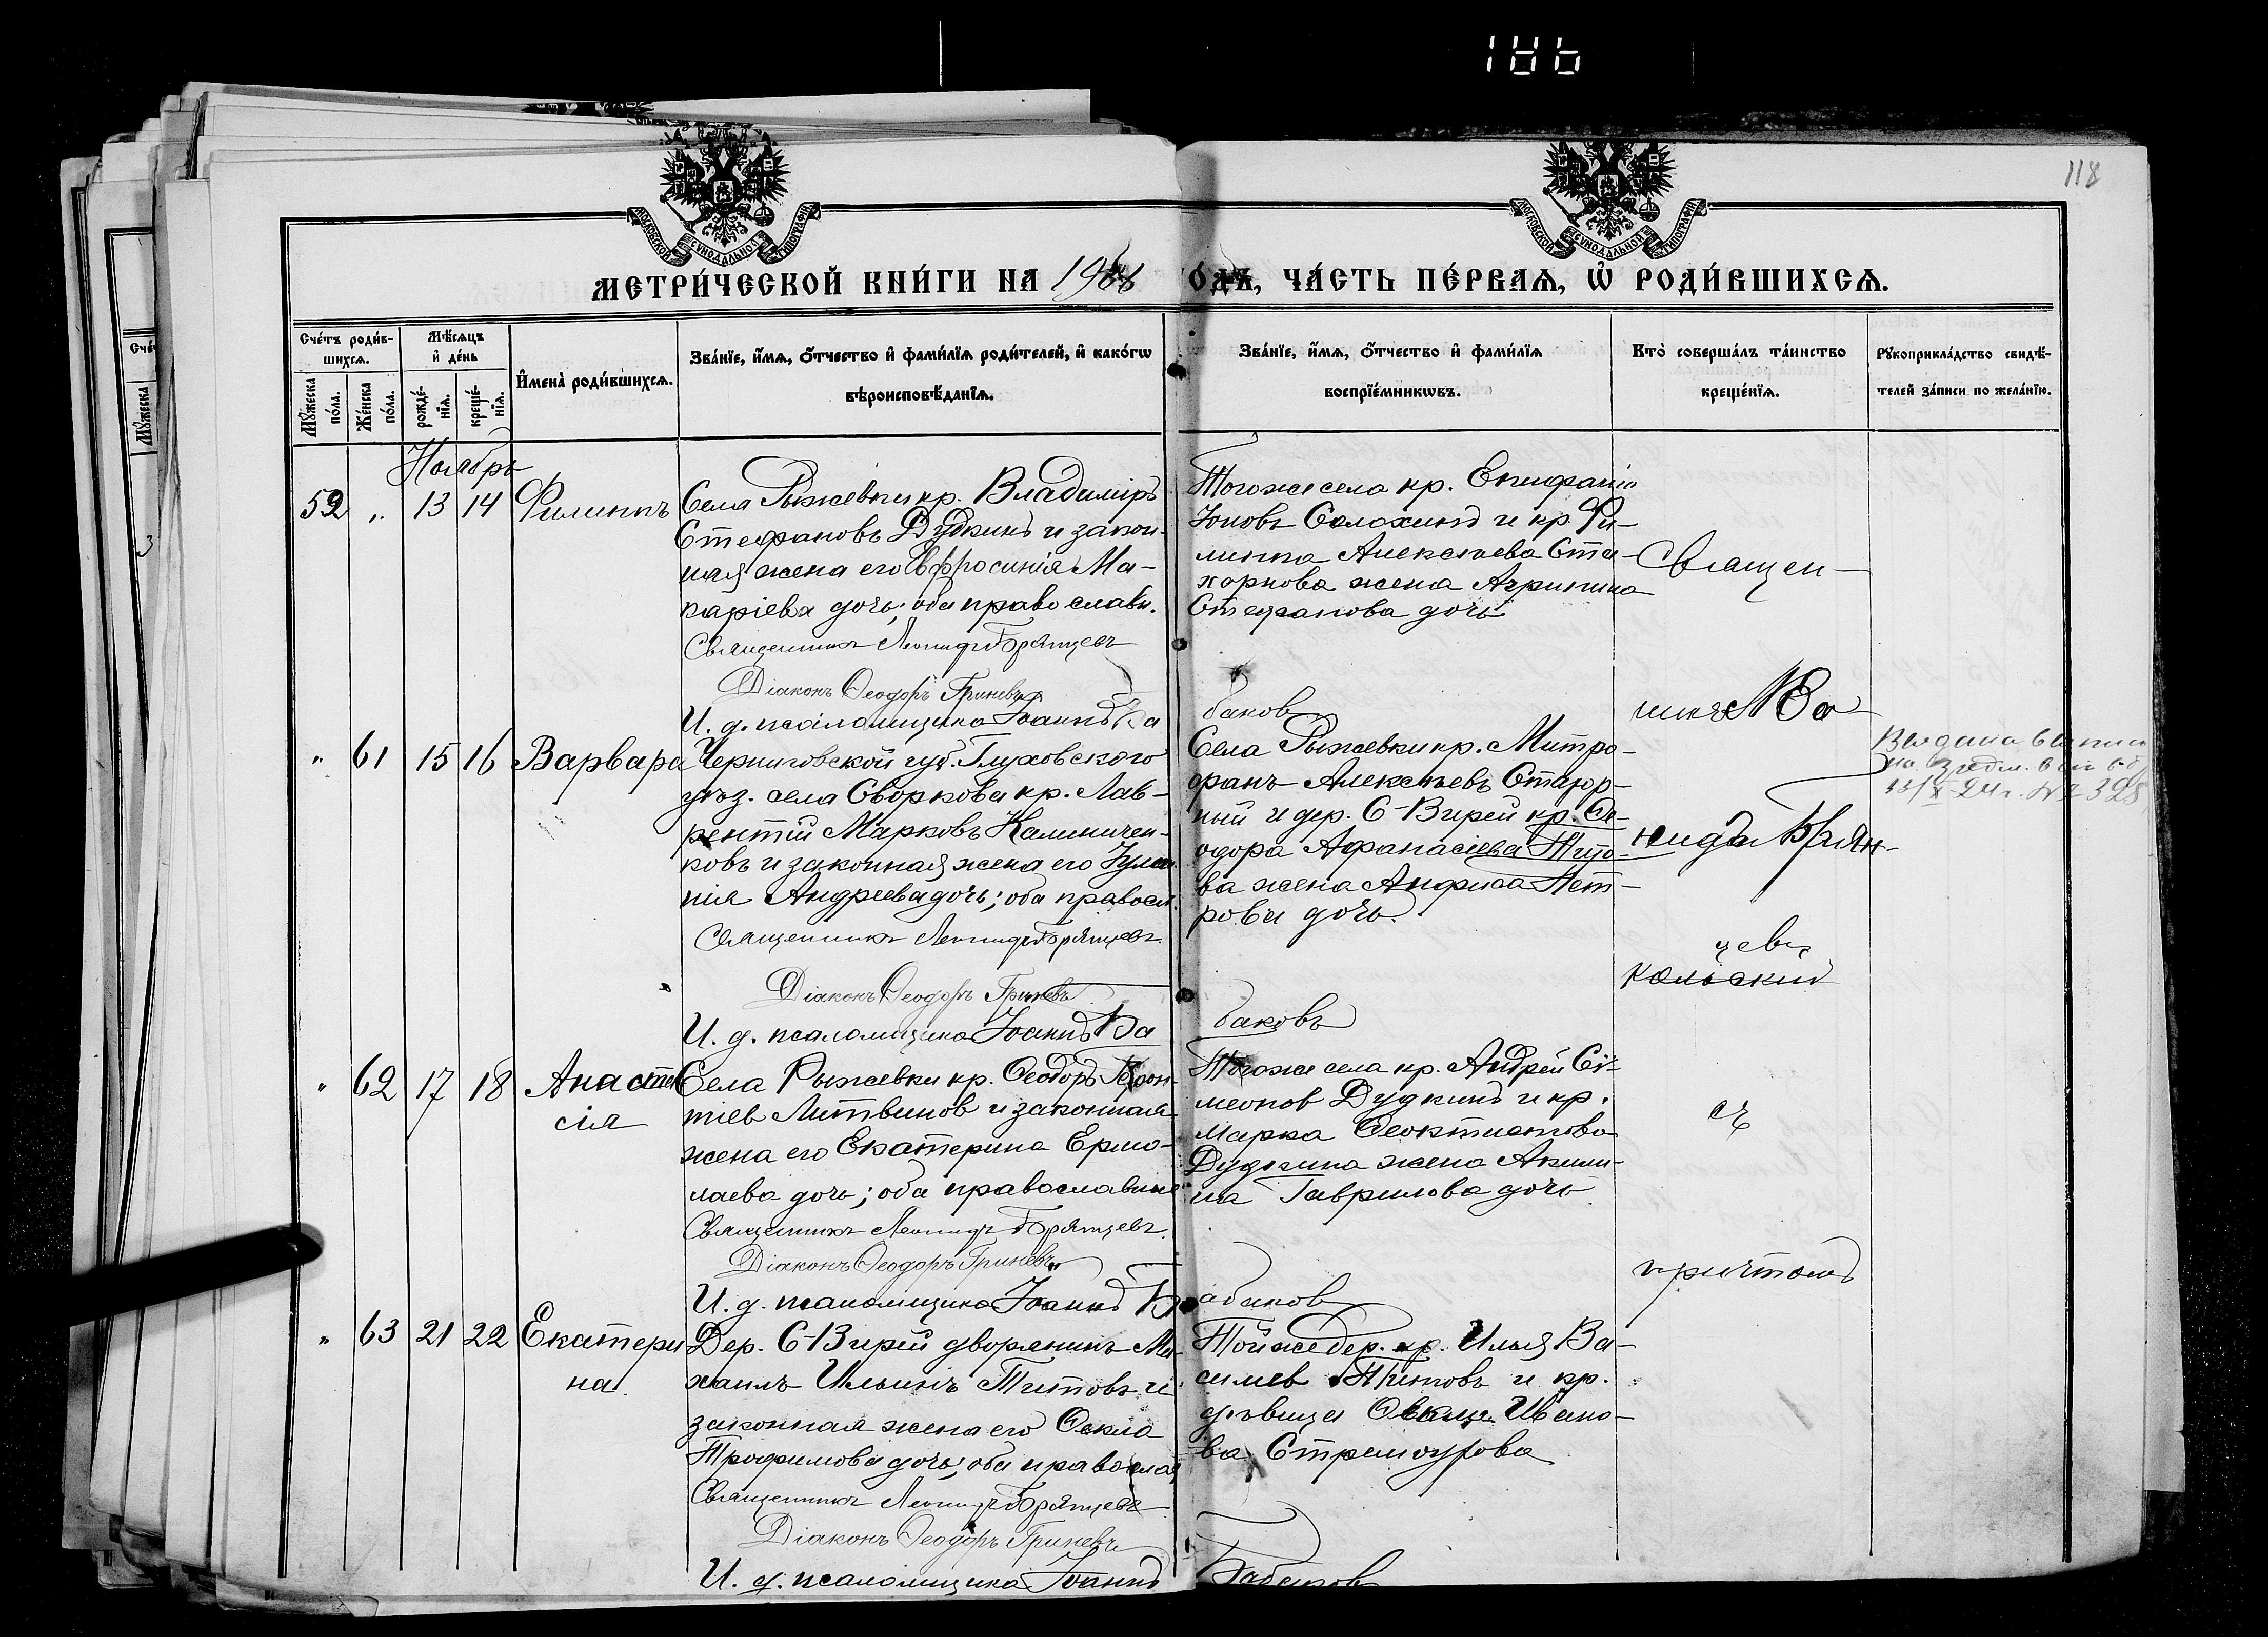 186
118
МОСКОВСКОЙ СѴНОДАЛЬНОЙ ТИПОГРАФІИ
МОСКОВСКОЙ СѴНОДАЛЬНОЙ ТИПОГРАФІИ
МЕТРИ́ЧЕСКОЙ КНИ́ГИ НА 19 О́ДЪ, ЧА́СТЬ ПЕ́РВАѦ, Ѡ҆ РОДИ́ВШИХСѦ.
Сче́тъ роди́в-
шихсѧ.
Мꙋ́жеска по́ла.
Же́нска по́ла.
Мѣ́сѧцъ
и҆ де́нь
рожде́-
нїѧ.
креще́-
нїѧ.
И҆мена̀ роди́вшихсѧ.
Зва́нїе, и҆́мѧ, ѻ҆́тчество и҆ фами́лїѧ роди́телей, и҆ како́гѡ
вѣроисповѣ́данїѧ.
Зва́нїе, и҆́мѧ, ѻ҆́тчество и҆ фами́лїѧ
воспрїе́мникѡвъ.
Кто̀ соверша́лъ та́инство
креще́нїѧ.
Рꙋкоприкла́дство свидѣ́-
телей за́писи по жела́нїю.
Ноябрь
52 " 13 14 Филиппъ
Села Рыжевки кр. Владиміръ
Стефановъ Дудкинъ и закон-
ная жена его Евфросинія Ма-
каріева дочь; оба православн.
Священникъ Леонидъ Брянцевъ
Діаконъ Ѳеодоръ Гриневъ
И. д. псаломщика Іоаннъ Ба
баковъ
Тогоже села кр. Епифаній
Іоновъ Солохинъ и кр. Фи-
липпа Алексѣева Ста-
жена Агрипина
Стефанова дочь
Священ-
никъ
" 61 15 16 Варвара
Черниговской губ. Глуховского
уѣз. села Своркова кр. Лав-
рентій Марковъ Калиничен-
ковъ и законная жена его Іулiа-
нія Андреева дочь; оба правосл.
Священникъ Леонидъ Брянцевъ
Діаконъ Ѳеодоръ Гриневъ
И. д. псаломщика Іоаннъ Ба
баковъ
Села Рыжевки кр. Митро-
фанъ Алексѣевъ
и дер. С-Вирей кр. Ѳе-
одора Афанасіева Тито-
ва жена Анфиса Пет-
рова дочь.
нидъ Брян-
цевъ
Выдана выпись
№ 328
" 62 17 18 Анаста
сія
Села Рыжевки кр. Ѳеодоръ Герон-
тіев Литвинов и законная
жена его Екатерина Ермо-
лаева дочь; оба православные
Священникъ Леонидъ Брянцевъ
Діаконъ Ѳеодоръ Гриневъ
И. д. псаломщика Іоаннъ Б
абаков
Тогоже села кр. Андрей Сѵ-
меонов Дудкинъ и кр.
Марка Ѳеоктистова
Дудкина жена Акили-
на Гаврилова дочь
съ
причтомъ
" 63 21 22 Екатери
на.
Дер. С-Вирей дворянинъ Ми-
хаилъ Ильинъ Титовъ и
законная жена его Ѳекла
Трофимова дочь; оба православ
Священникъ Леонидъ Брянцевъ
Діаконъ Ѳеодоръ Гриневъ
И. д. псаломщика Іоаннъ
Бабаков
Тойже дер. кр. Илья Ва-
силев Титовъ и кр.
дѣвица Ивано-
ва Стремоухова